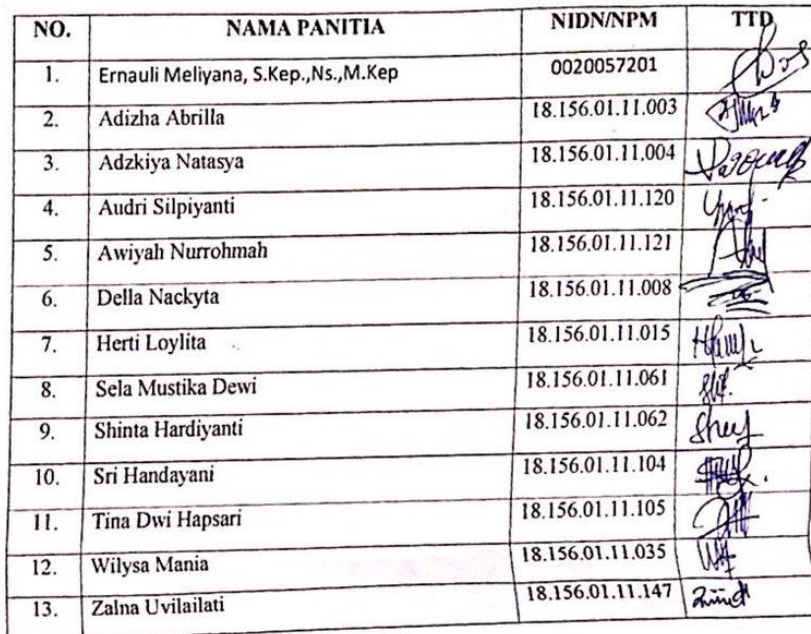 NO. NAMA PANITIA NIDN/NPM TTD
1. Ernauli Meliyana, S.Kep.,Ns.,M.Kep 0020057201
2. Adizha Abrilla 18.156.01.11.003
3. Adzkiya Natasya 18.156.01.11.004
4. Audri Silpiyanti 18.156.01.11.120
5. Awiyah Nurrohmah 18.156.01.11.121
6. Della Nackyta 18.156.01.11.008
7. Herti Loylita 18.156.01.11.015
8. Sela Mustika Dewi 18.156.01.11.061
9. Shinta Hardiyanti 18.156.01.11.062
10. Sri Handayani 18.156.01.11.104
11. Tina Dwi Hapsari 18.156.01.11.105
12. Wilysa Mania 18.156.01.11.035
13. Zalna Uvilailati 18.156.01.11.147